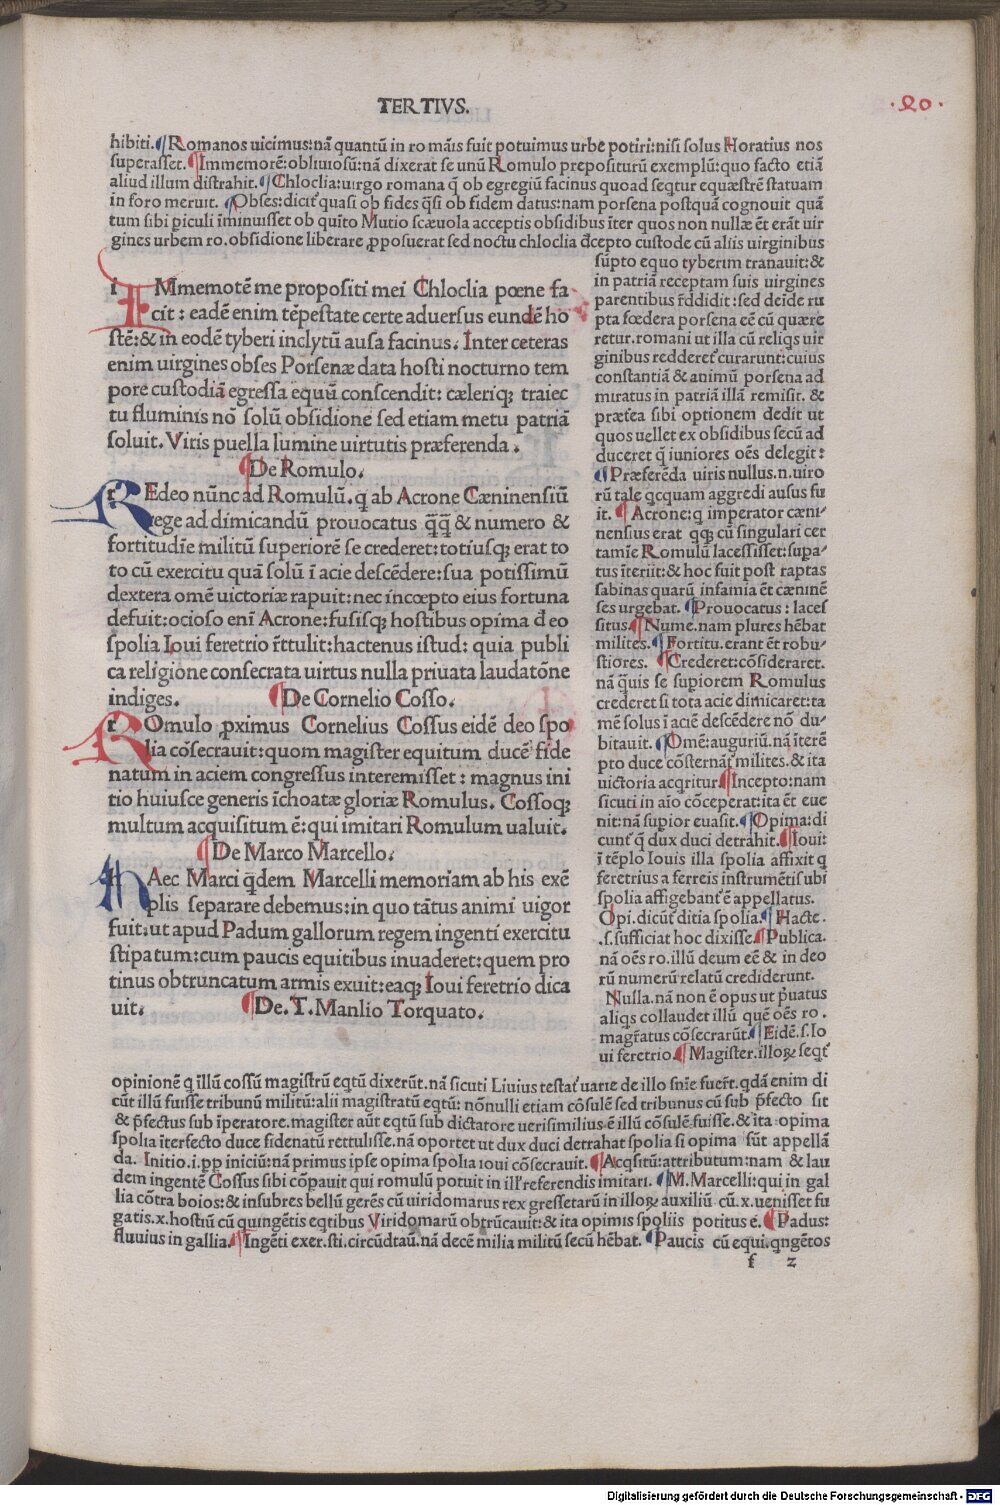 TERTIVS.
·20·
hibiti.¶Romanos uicimus:nā quantū in ro māis fuit potuimus urbē potiri:nisi solus Horatius nos
superasset.¶Immemorē:obliuiosū:nā dixerat se unū Romulo prepositurū exemplū:quo facto etiā
aliud illum distrahit.¶Chloclia:uirgo romana q̄ ob egregiū facinus quoad seqtur equæstrē statuam
in foro meruit. ¶Obses:dicit' quasi ob fides q̄si ob fidem datus:nam porsena postquā cognouit quā
tum sibi ꝑiculi īminuisset ob quīto Mutio scæuola acceptis obsidibus īter quos non nullæ ēt erāt uir
gines urbem ro.obsidione liberare ꝓposuerat sed noctu chloclia đcepto custode cū aliis uirginibus
sūpto equo tyberim tranauit:&
in patriā receptam suis uirgines
parentibus r̄ddidit:sed deīde ru
pta fœdera porsena eē cū quære
retur.romani ut illa cū reliqs uir
ginibus redderet' curarunt:cuius
constantiā & animū porsena ad
miratus in patriā illā remisit. &
præt́ea sibi optionem dedit ut
quos uellet ex obsidibus secū ad
duceret q̄ iuniores oēs delegit:
¶Præferēda uiris nullus.n.uiro
rū tale qcquam aggredi ausus fu
it. ¶Acrone:q imperator cæni-
nensius erat qqꝫ cū singulari cer
tamīe Romulū lacessisset:supa-
tus īteriit:& hoc fuit post raptas
sabinas quarū infamia ēt cæninē
ses urgebat. ¶Prouocatus:laces
situs.¶Nume.nam plures hēbat
milites.¶Fortitu.erant ēt robu-
stiores. ¶Crederet:cōsideraret.
nā q̄uis se supiorem Romulus
crederet si tota acie dimicaret:ta
mē solus ī aciē descēdere nō du-
bitauit.¶Omē:auguriū.nā īterē
pto duce cōsternāt' milites.& ita
uictoria acqritur.¶Incepto:nam
sicuti in aīo cōceperat:ita ēt eue
nit:nā supior euasit.¶Opima:di
cunt' q̄ dux duci detrahit.¶Ioui:
ī tēplo Iouis illa spolia affixit q
feretrius a ferreis instrumētis ubi
spolia affigebant' ē appellatus.
Opi.dicūt' ditia spolia.¶Hacte.
.s.sufficiat hoc dixisse.¶Publica.
nā oēs ro.illū deum eē & in deo
rū numerū relatū crediderunt.
Nulla.nā non ē opus ut p̄uatus
aliqs collaudet illū quē oēs ro.
magr̄atus cōsecrarūt.¶Eidē.s.Io
ui feretrio.¶Magister.illoꝝ seqt'
IMmemotē me propositi mei Chloclia pœne fa
cit: eadē enim tēpestate certe aduersus eundē ho
stē:& in eodē tyberi inclytū ausa facinus. Inter ceteras
enim uirgines obses Porsenæ data hosti nocturno tem
pore custodiā egressa equū conscendit: cæleriqꝫ traiec
tu fluminis nō solū obsidione sed etiam metu patriā
soluit. Viris puella lumine uirtutis præferenda.
¶De Romulo.
REdeo nūnc ad Romulū.q ab Acrone Cæninensiū
rege ad dimicandū prouocatus q̄q̄ & numero &
fortitudīe militū superiorē se crederet:totiusqꝫ erat to
to cū exercitu quā solū ī acie descēdere:sua potissimū
dextera omē uictoriæ rapuit:nec incœpto eius fortuna
defuit:ocioso enī Acrone:fusisqꝫ hostibus opima đ eo
spolia Ioui feretrio r̄ttulit:hactenus istud: quia publi
ca religiōne consecrata uirtus nulla priuata laudatōne
indiges. ¶De Cornelio Cosso.
ROmulo ꝓximus Cornelius Cossus eidē deo spo
lia cōsecrauit:quom magister equitum ducē fide
natum in aciem congressus interemisset: magnus ini
tio huiusce generis īchoatæ gloriæ Romulus. Cossoqꝫ
multum acquisitum ē:qui imitari Romulum ualuit.
¶De Marco Marcello.
HAec Marci q̄dem Marcelli memoriam ab his exē
plis separare debemus:in quo tātus animi uigor
fuit:ut apud Padum gallorum regem ingenti exercitu
stipatum:cum paucis equitibus inuaderet:quem pro
tinus obtruncatum armis exuit:eaqꝫ Ioui feretrio dica
uit. ¶De.T.Manlio Torquato.
opinionē q īllū cossū magistrū eqtū dixerūt.nā sicuti Liuius testat' uarie de illo snīe fuer̄t.qdā enim di
cūt illū fuisse tribunū militū:alii magistratū eqtū: nōnulli etiam cōsulē sed tribunus cū sub p̄fecto sit
& p̄fectus sub īperatore.magister aūt eqtū sub dictatore uerisimilius ē illū cōsulē fuisse.& īta opima
spolia īterfecto duce fidenatū rettulisse.nā oportet ut dux duci detrahat spolia si opima sūt appellā
da. Initio.i.pp iniciū:nā primus ipse opima spolia ioui cōsecrauit.¶Acqsitū:attributum:nam & lau
dem ingentē Cossus sibi cōpauit qui romulū potuit in ill' referendis imitari. ¶M.Marcelli:qui in gal
lia cōtra boios:& insubres bellū gerēs cū uiridomarus rex gressetarū in illoꝝ auxiliū cū.x.uenisset fu
gatis.x.hostiū cū quingētis eqtibus Viridomarū obtrūcauit:& ita opimis spoliis potitus ē.¶Padus:
fluuius in gallia.¶Ingēti exer.sti.circūdtau.nā decē milia militū secū hēbat.¶Paucis cū equi.qngētos
f z
Digitalisierung gefördert durch die Deutsche Forschungsgemeinschaft - DFG